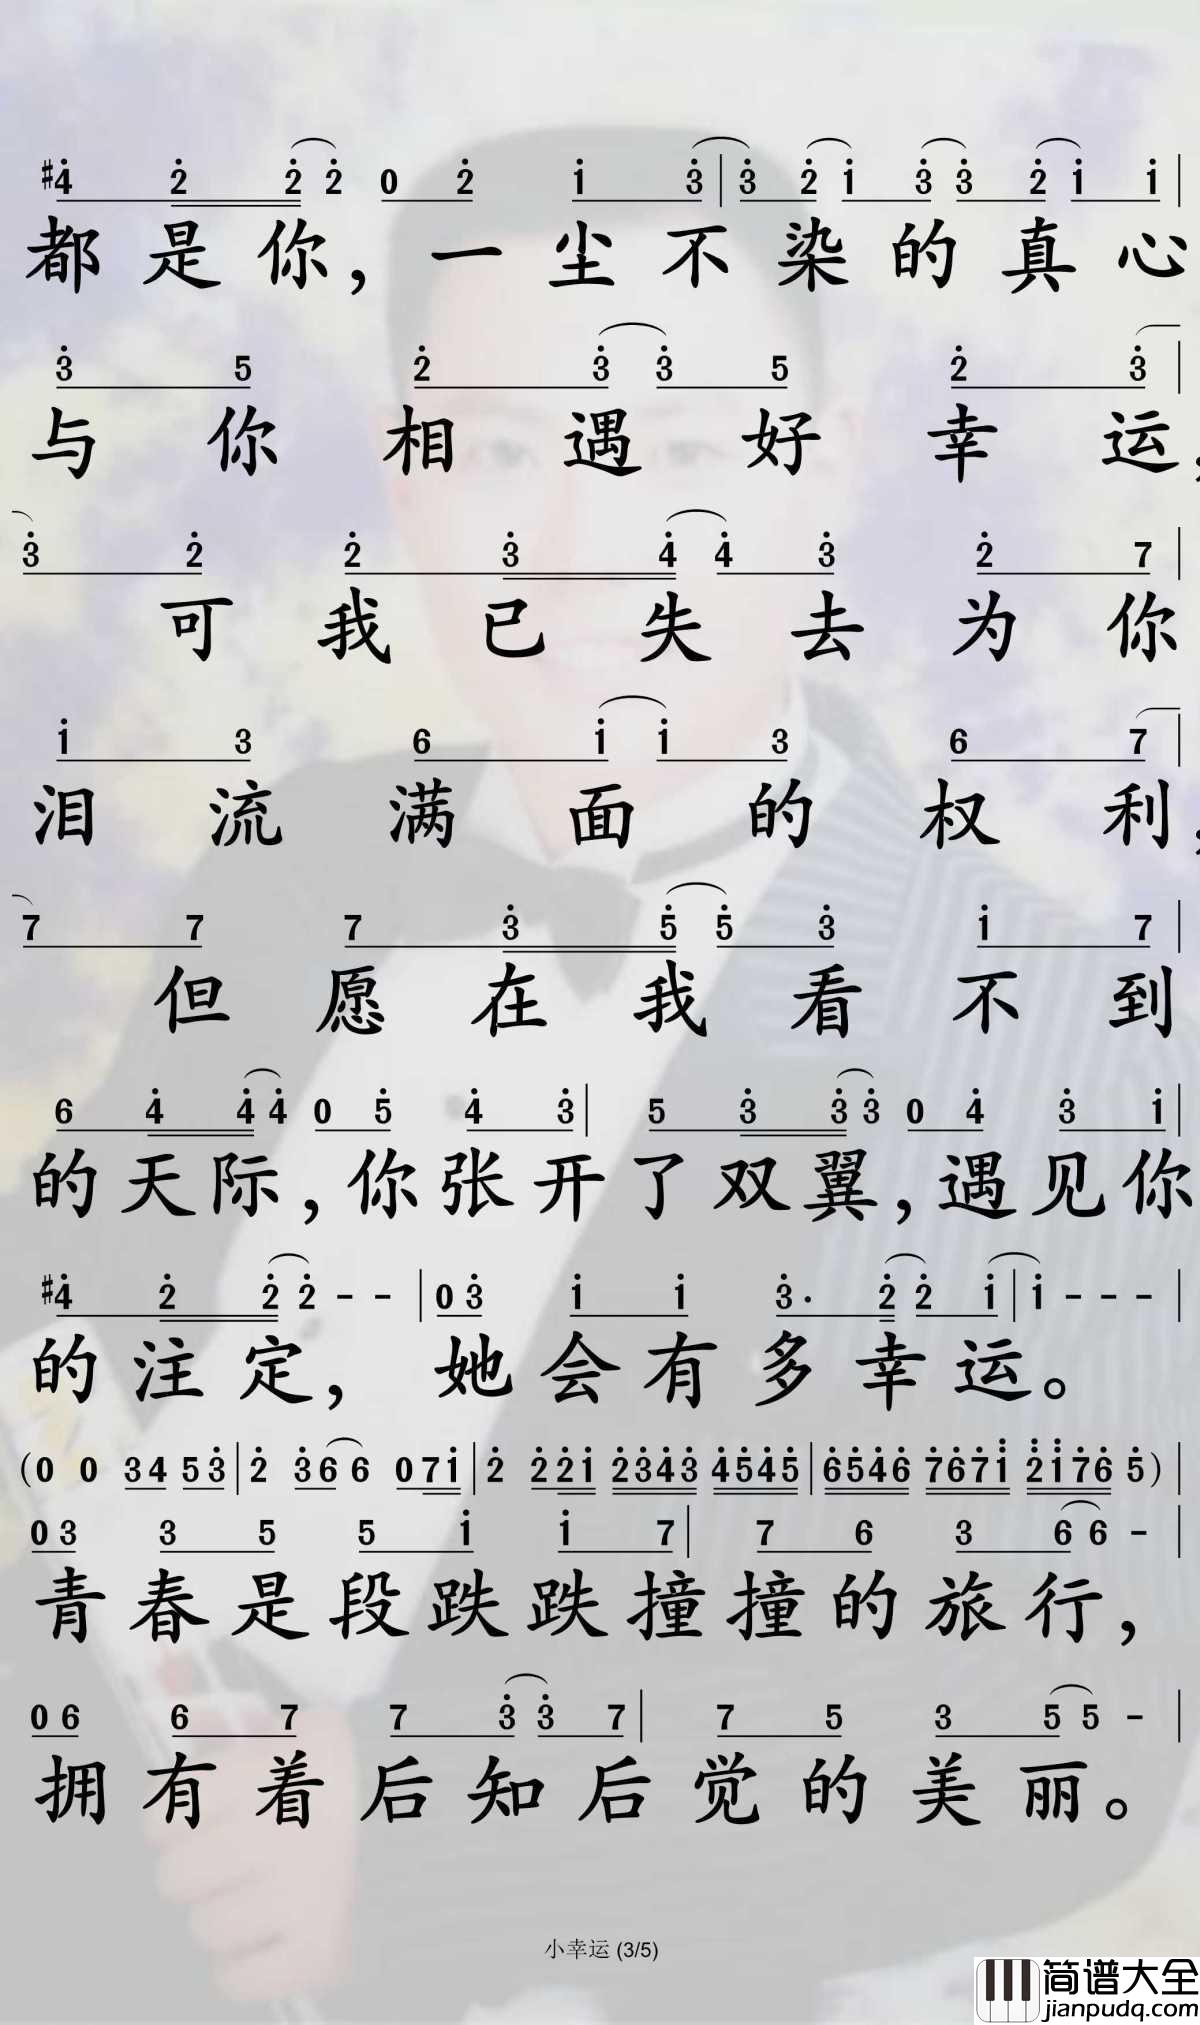 #4 2 2 2 0 2 1 3 | 3 2 1 3 3 2 1 1 |
都是你，一尘不染的真心
3 5 2 3 3 5 2 3 |
与你相遇好幸运，
3 2 2 3 4 4 3 2 7 |
可我已失去为你
1 3 6 1 1 3 6 7 |
泪流满面的权利，
7 7 7 3 5 5 3 1 7 |
但愿在我看不到
6 4 4 4 0 5 4 3 | 5 3 3 3 0 4 3 1 |
的天际，你张开了双翼，遇见你
#4 2 2 2 - - | 0 3 1 1 3· 2 2 1 | 1 - - - |
的注定，她会有多幸运。
(0 0 3 4 5 3 | 2 3 6 6 0 7 1 | 2 2 2 1 2 3 4 3 4 5 4 5 | 6 5 4 6 7 6 7 1 2 1 7 6 5) |
0 3 3 5 5 1 1 7 | 7 6 3 6 6 - |
青春是段跌跌撞撞的旅行，
0 6 6 7 7 3 3 7 | 7 5 3 5 5 - |
拥有着后知后觉的美丽。
小幸运 (3/5)
简谱大全
jianpudq.com